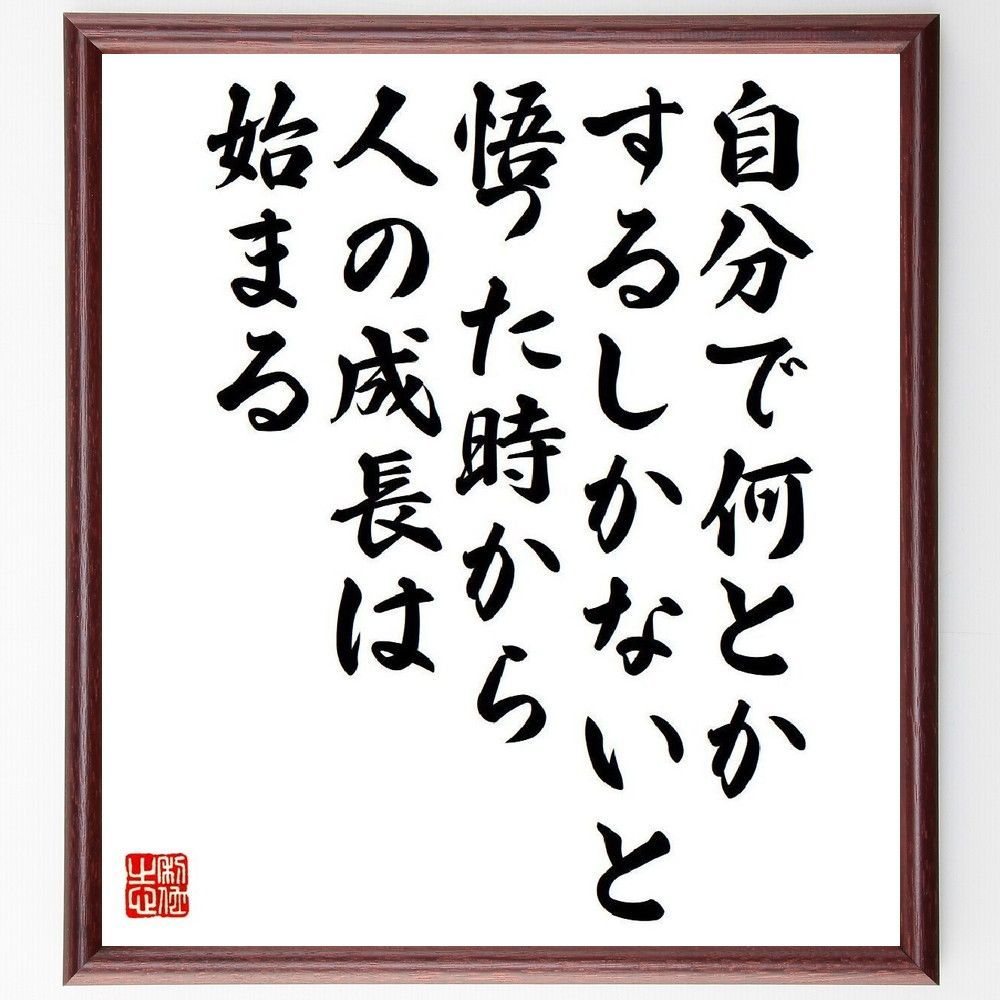 自分で何とか
するしかないと
悟った時から
人の成長は
始まる